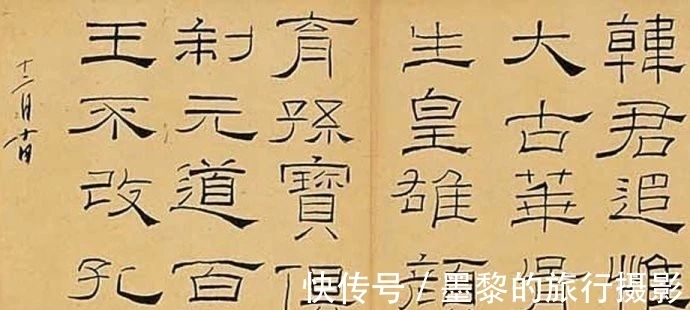 韓君追惟
大古華
生皇雄顏
育孫寶俱
制元道百
王不改孔
快传号 / 墨黎的旅行摄影